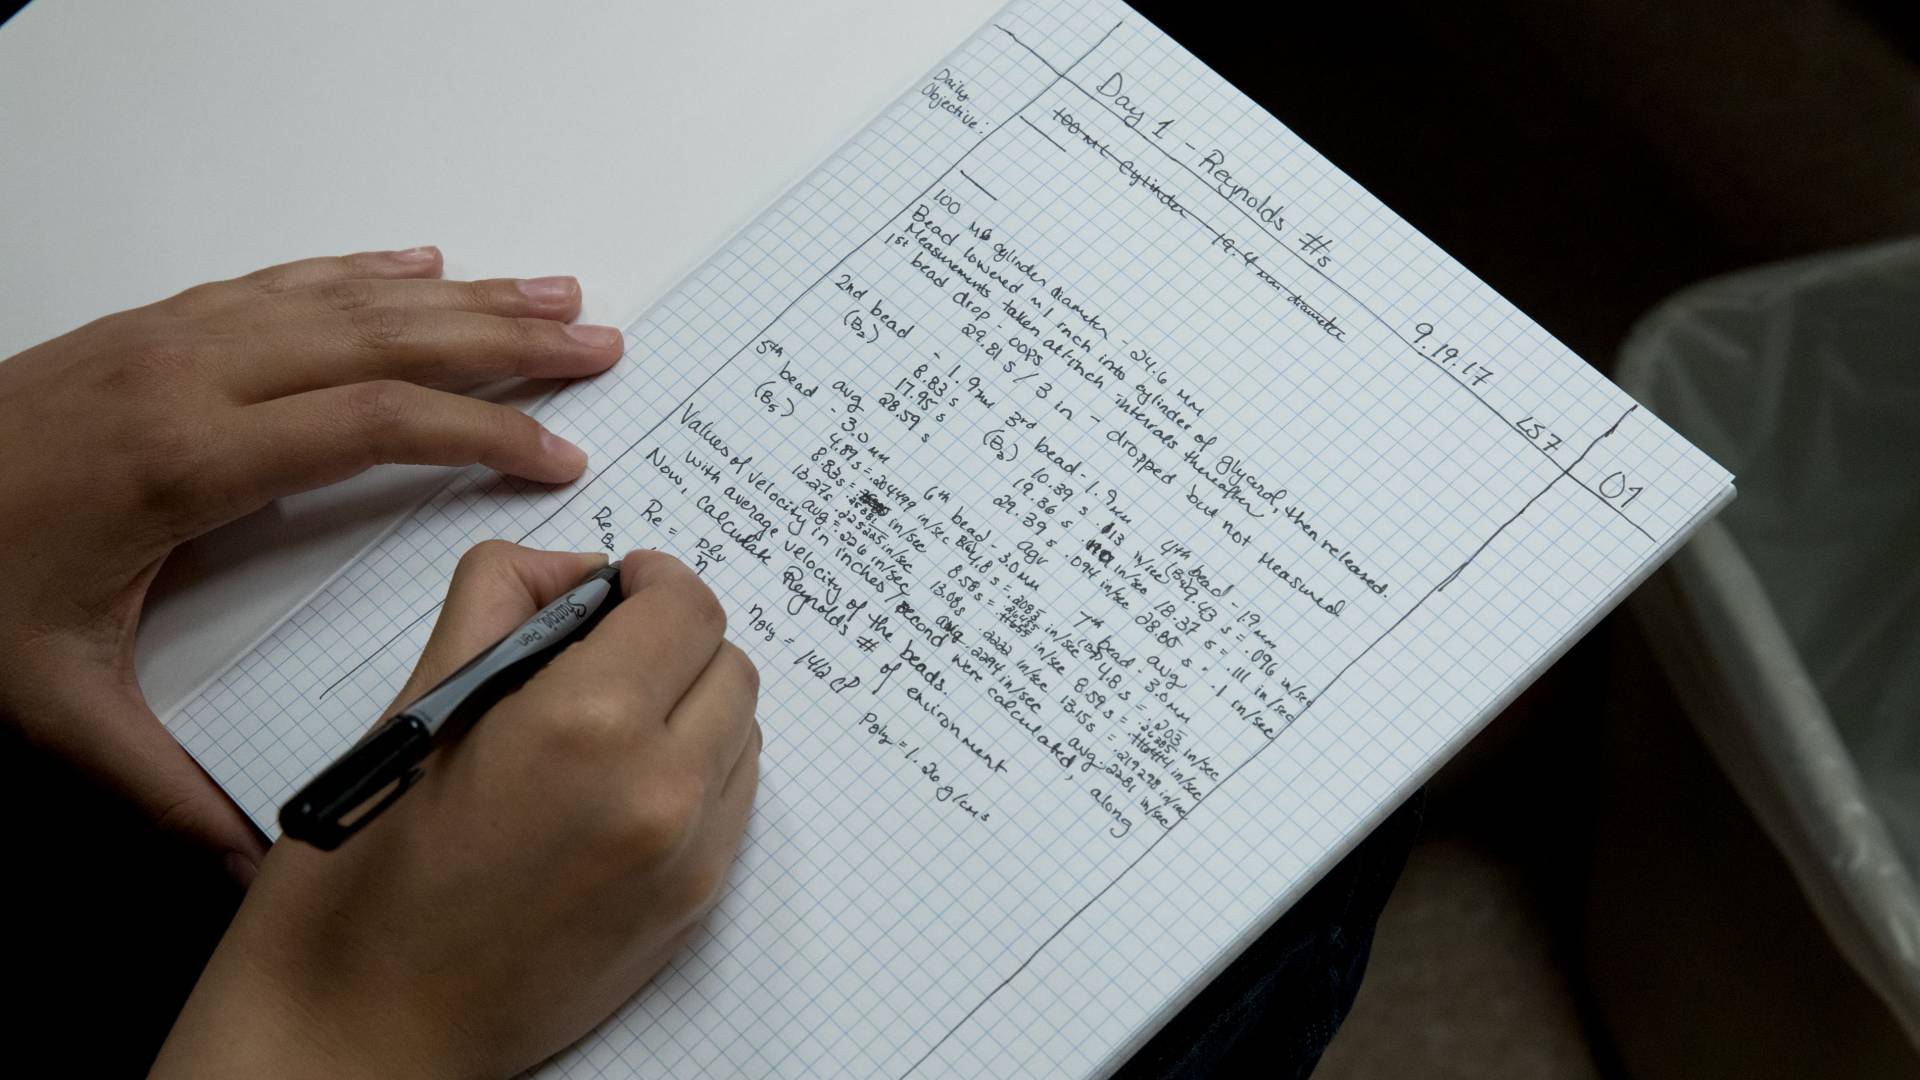 Day 1 - Reynolds #s 9.19.17 LS7 01
Daily
Objective:
100 ML Cylinder 19.4 mm diameter
100 ML cylinder diameter - 24.6 MM
Bead lowered ~1 inch into cylinder of glycerol, then released.
Measurements taken at 1 inch intervals thereafter,
1st bead drop - OOPS - dropped but not measured
29.81 s / 3 in
2nd bead - 1.9mm
(B₂) 8.83 s
17.95 s
28.59 s
avg
3rd bead - 1.9 mm
(B₃) 10.39 s
19.36 s .113 in/sec
29.39 s .094 in/sec
avg
4th bead - 1.9 mm
(B₄) 9.43 s = .096 in/sec
18.37 s = .111 in/sec
28.85 s
avg .1 in/sec
5th bead - 3.0 MM
(B₅) 4.89 s = .204499 in/sec
8.83 s = in/sec
13.27 s .225225 in/sec
avg = .226 in/sec
6th bead - 3.0 MM
4.8 s = .2083 in/sec
8.58 s = in/sec
13.08 s .2222 in/sec
avg .2294 in/sec
7th bead - 3.0 MM
4.8 s = .203 in/sec
8.59 s = in/sec
13.15 s = .219298 in/sec
avg .2281 in/sec
Values of velocity in inches/second were calculated, along
with average velocity of the beads.
Now, calculate Reynolds # of environment
Re = ρℓv
η
η gly = 1412 cP
ρ gly = 1.26 g/cm³
Re B₂
Sharpie Pen